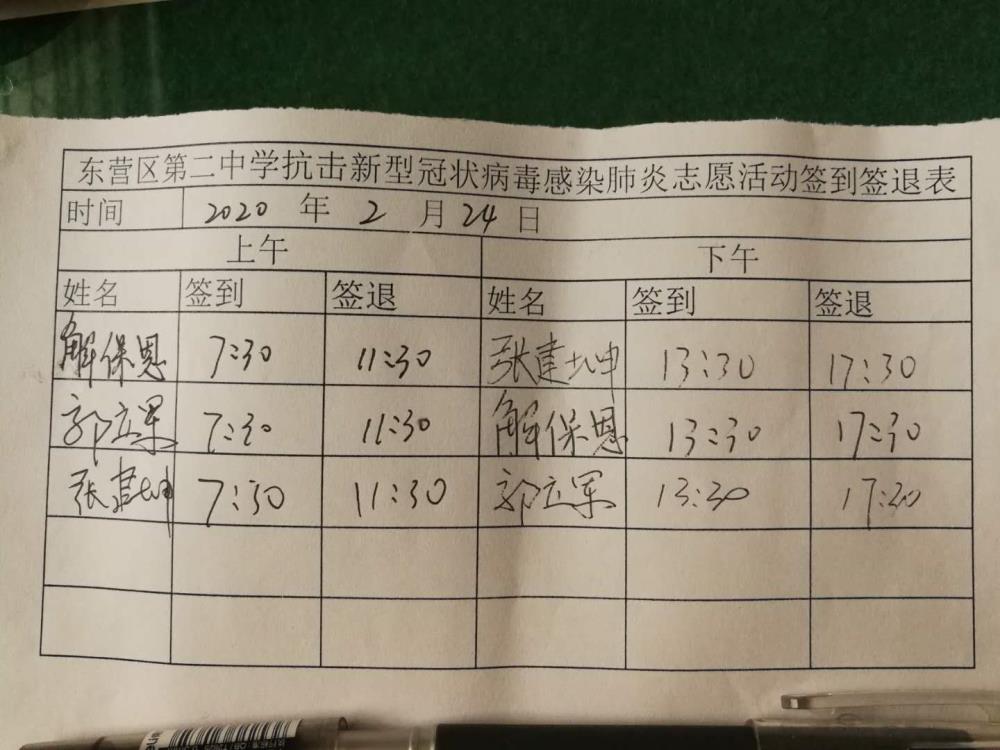 东营区第二中学抗击新型冠状病毒感染肺炎志愿活动签到签退表
时间 2020 年 2 月 24 日
上午 下午
姓名 签到 签退 姓名 签到 签退
解保恩 7:30 11:30 张建坤 13:30 17:30
郭立军 7:30 11:30 解保恩 13:30 17:30
张建坤 7:30 11:30 郭立军 13:30 17:30